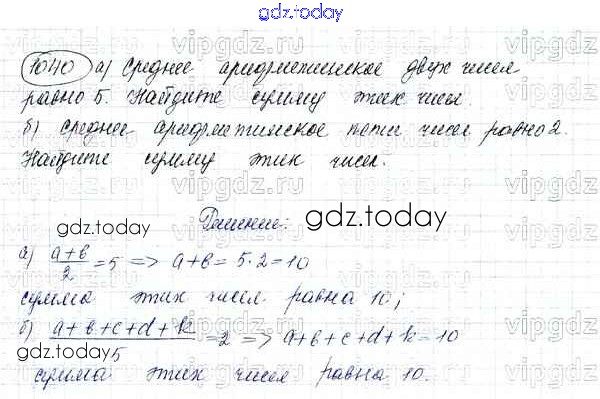 gdz.today
1040 а) Среднее арифметическое двух чисел
равно 5. Найдите сумму этих чисел.
б) Среднее арифметическое пяти чисел равно 2.
Найдите сумму этих чисел.
gdz.today
Решение: gdz.today
а) (a+b)/2 = 5 => a+b = 5·2 = 10
сумма этих чисел равна 10;
б) (a+b+c+d+k)/5 = 2 => a+b+c+d+k = 10
gdz.today
сумма этих чисел равна 10.